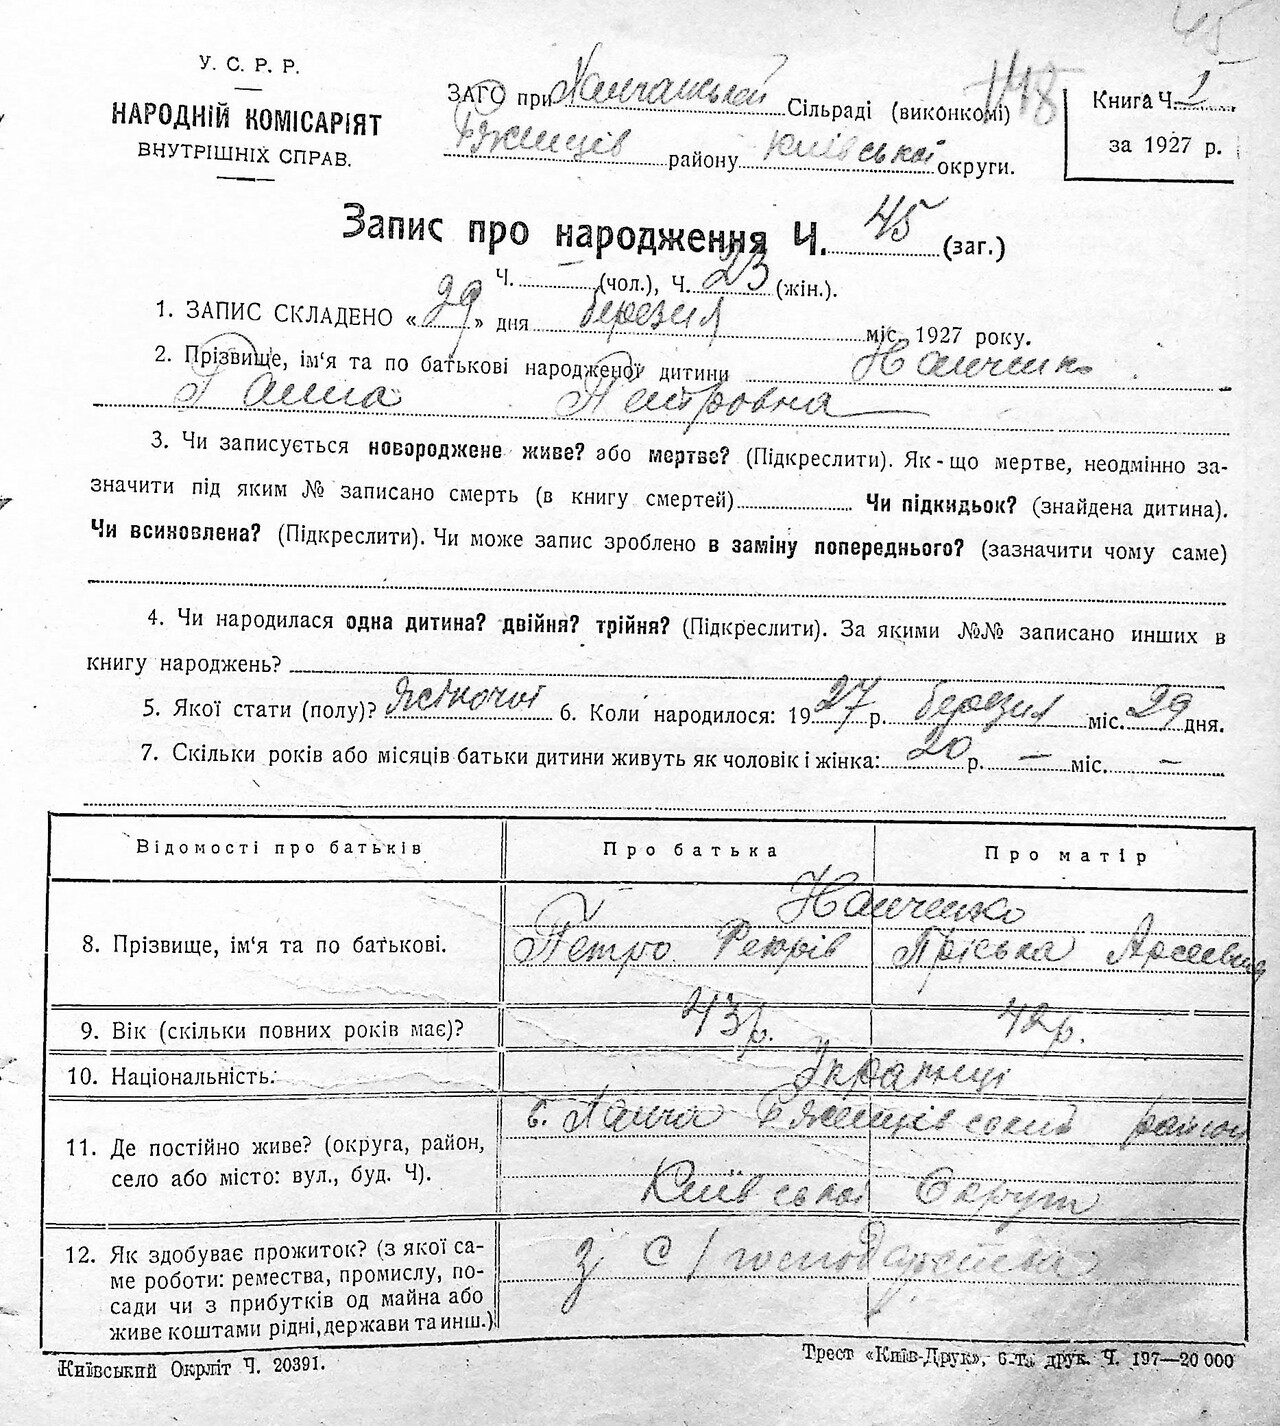 45
У. С. Р. Р.
НАРОДНІЙ КОМІСАРІЯТ
ВНУТРІШНІХ СПРАВ.
ЗАГС при Ханчанській Сільраді (виконкомі)
району Київської округи.
148
Книга Ч. 1
за 1927 р.
Запис про народження Ч. 45 (заг.)
Ч. — (чол.), Ч. 23 (жін.).
1. ЗАПИС СКЛАДЕНО «29» дня березня міс. 1927 року.
2. Прізвище, ім'я та по батькові народженої дитини
Ганна Петровна
3. Чи записується новороджене живе? або мертве? (Підкреслити). Як-що мертве, неодмінно за-
значити під яким № записано смерть (в книгу смертей) Чи підкидьок? (знайдена дитина).
Чи всиновлена? (Підкреслити). Чи може запис зроблено в заміну попереднього? (зазначити чому саме)
4. Чи народилася одна дитина? двійня? трійня? (Підкреслити). За якими №№ записано инших в
книгу народжень?
5. Якої стати (полу)? жіночої 6. Коли народилося: 1927 р. березня міс. 29 дня.
7. Скільки років або місяців батьки дитини живуть як чоловік і жінка: 20 р. — міс. —
Відомості про батьків Про батька Про матір
8. Прізвище, ім'я та по батькові. Петро Пріська
9. Вік (скільки повних років має)? 43 р. 42 р.
10. Національність. Українці
11. Де постійно живе? (округа, район,
село або місто: вул., буд. Ч). Київської Округи
12. Як здобуває прожиток? (з якої са-
ме роботи: ремества, промислу, по-
сади чи з прибутків од майна або
живе коштами рідні, держави та инш.) з С/господарства
Київський Окрліт Ч. 20391.
Трест «Київ-Друк», 6-та друк. Ч. 197—20 000